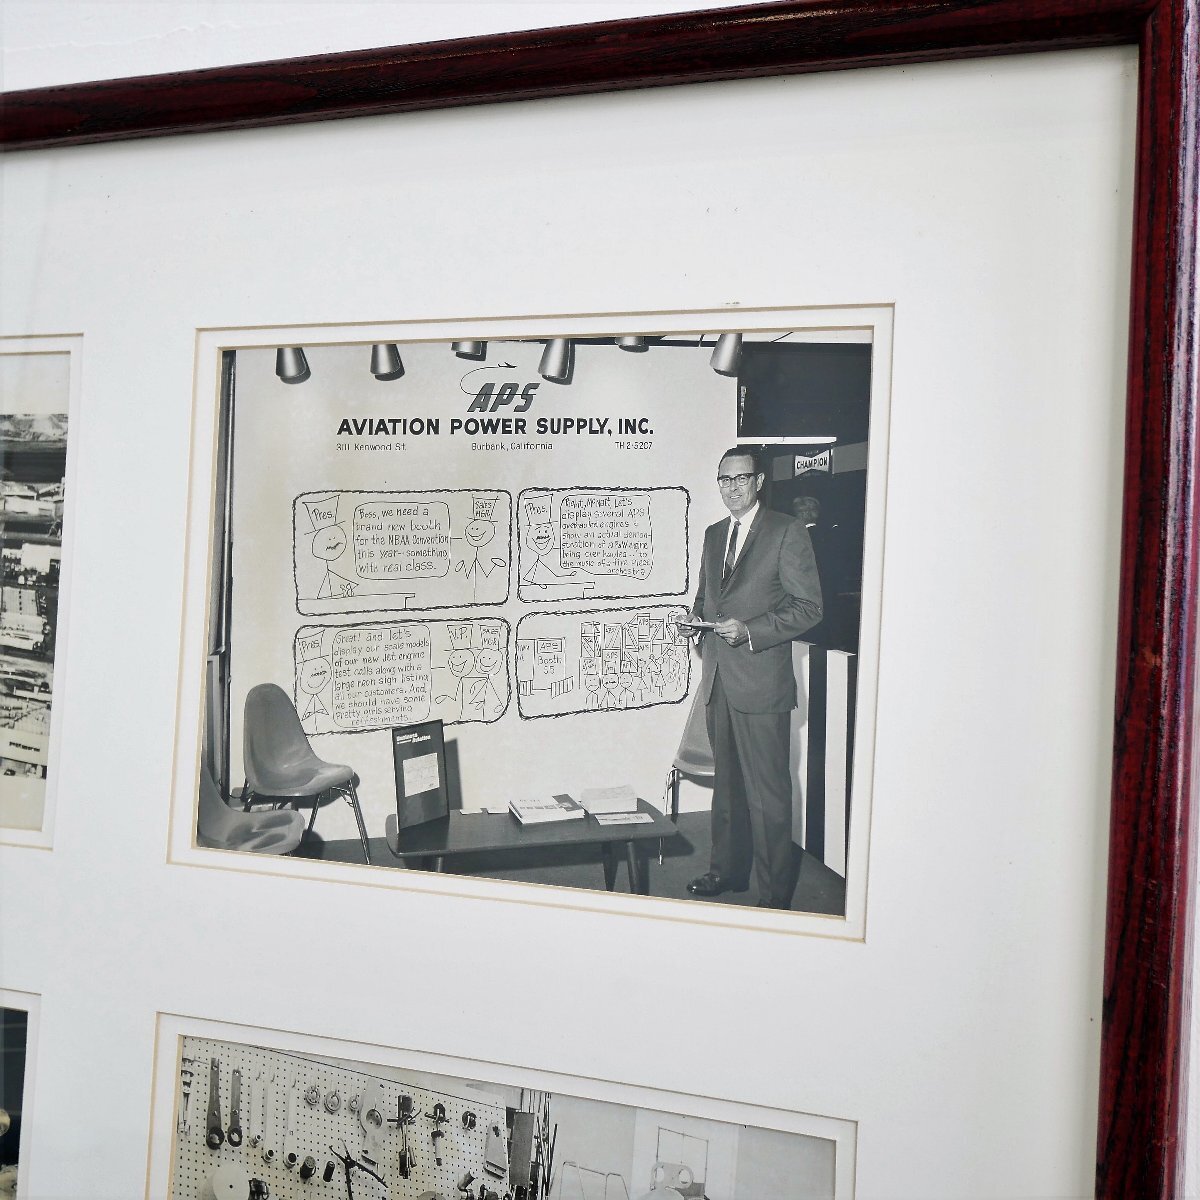 APS
AVIATION POWER SUPPLY, INC.
3111 Kenwood St. Burbank, California TH 2-5207
CHAMPION
Pres.
Boss, we need a
brand new booth
for the NBAA Convention
this year--something
with real class.
SALES
MGR.
Pres.
Right, Let's
display several APS
overhaul engines &
show an actual demon-
stration of a P&W engine
being overhauled... to
the music of a five piece
orchestra
Pres.
Great! and let's
display our scale models
of our new Jet engine
test cells along with a
large neon sign listing
all our customers. And,
we should have some
pretty girls serving
refreshments.
V.P.
SALES
MGR.
APS
Booth
55
APS
APS
Business
Aviation